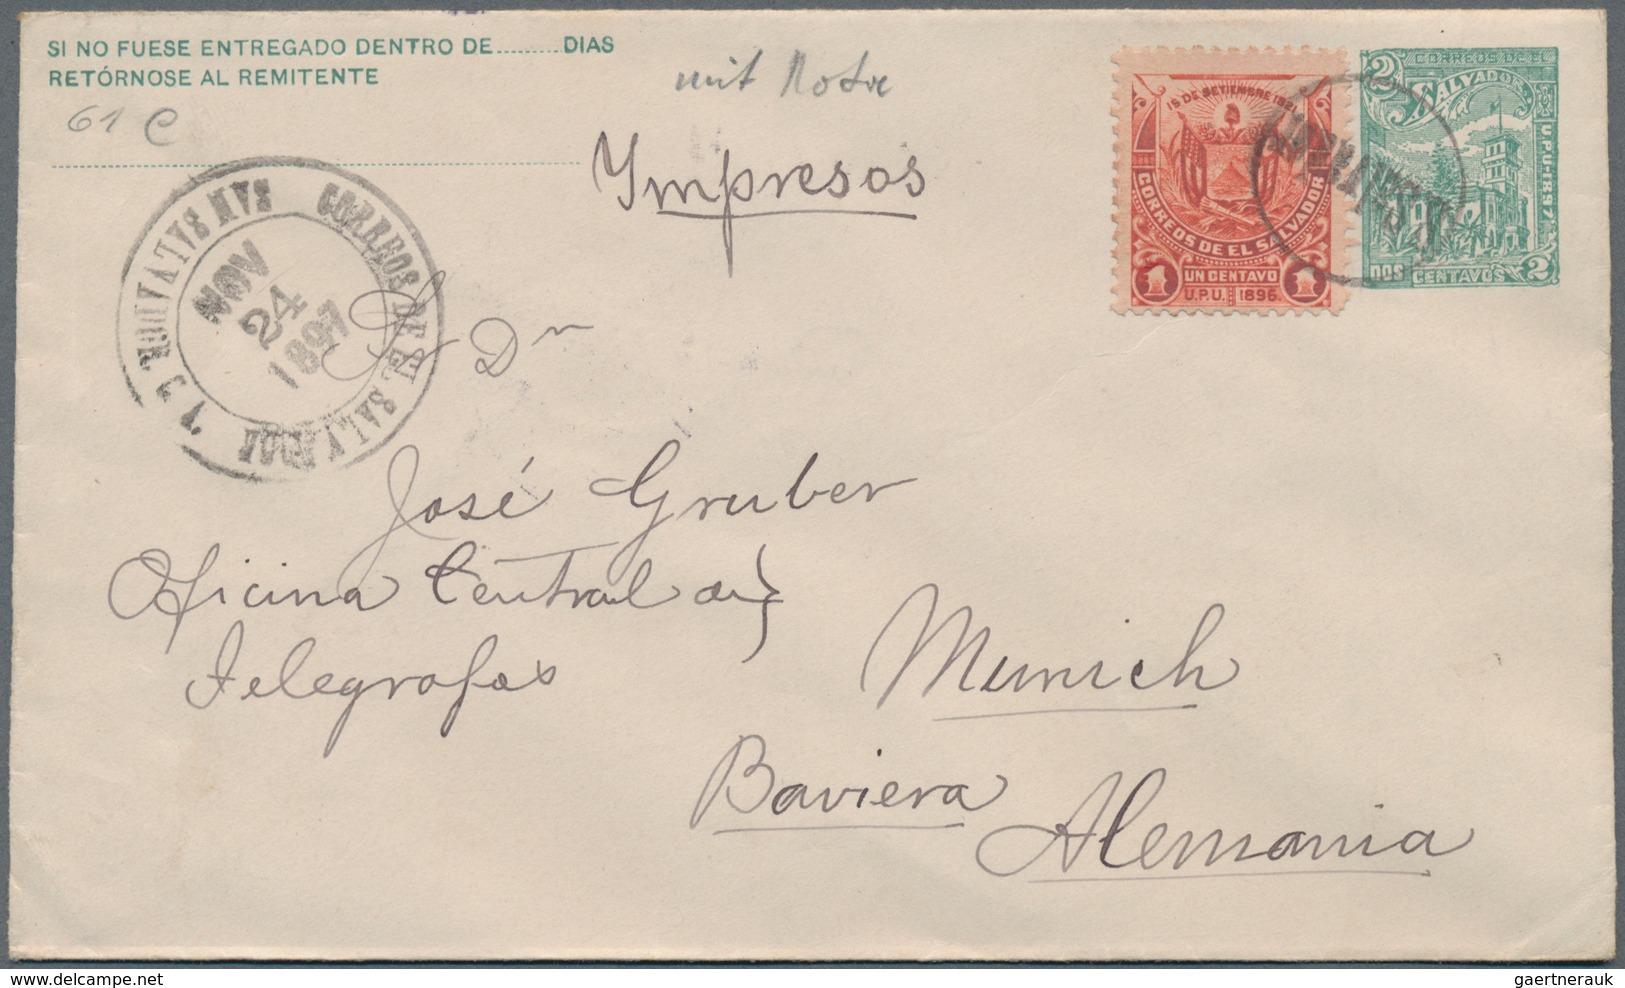 SI NO FUESE ENTREGADO DENTRO DE.........DIAS
RETÓRNOSE AL REMITENTE
61 C
mit
Ympresos
15 DE SETIEMBRE 1821
CORREOS DE EL SALVADOR
UN CENTAVO
1 1
U.P.U. 1896
2 CORREOS DE EL
SALVADOR
U.P.U-1897
DOS CENTAVOS 2
CORREOS DE EL SALVADOR
SAN SALVADOR
NOV
24
1897
Sr Dn
José Gruber
Oficina Central de }
Telegrafos
Munich
Baviera
Alemania
gaertnerauk @ delcampe.net